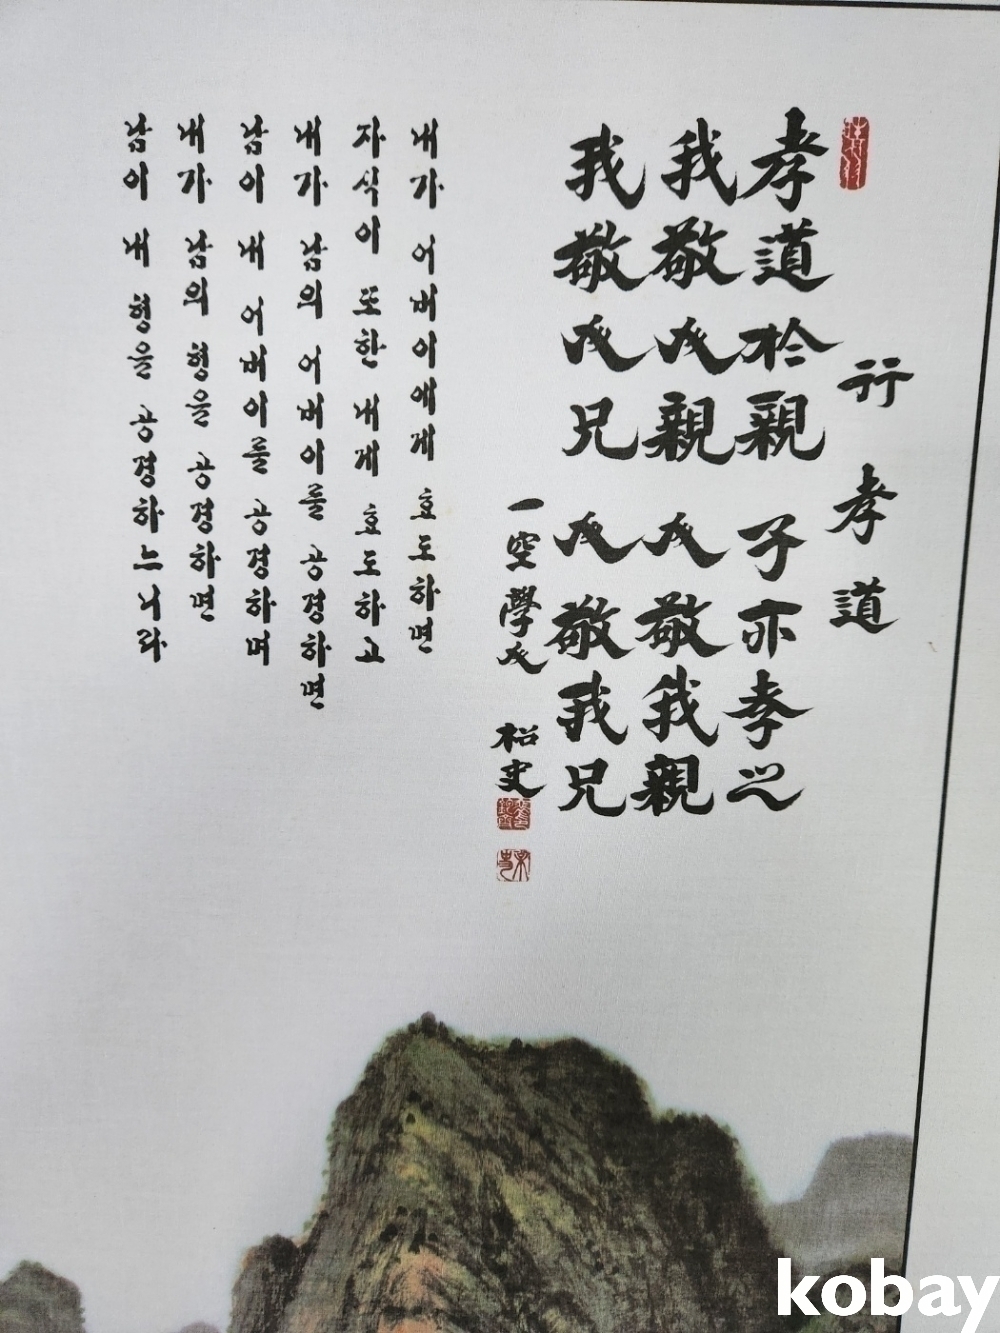 行 孝 道
孝道於親 子亦孝之
我敬人親 人敬我親
我敬人兄 人敬我兄
一空學人
내가 어버이에게 효도하면
자식이 또한 내게 효도하고
내가 남의 어버이를 공경하면
남이 내 어버이를 공경하며
내가 남의 형을 공경하면
남이 내 형을 공경하느니라
kobay